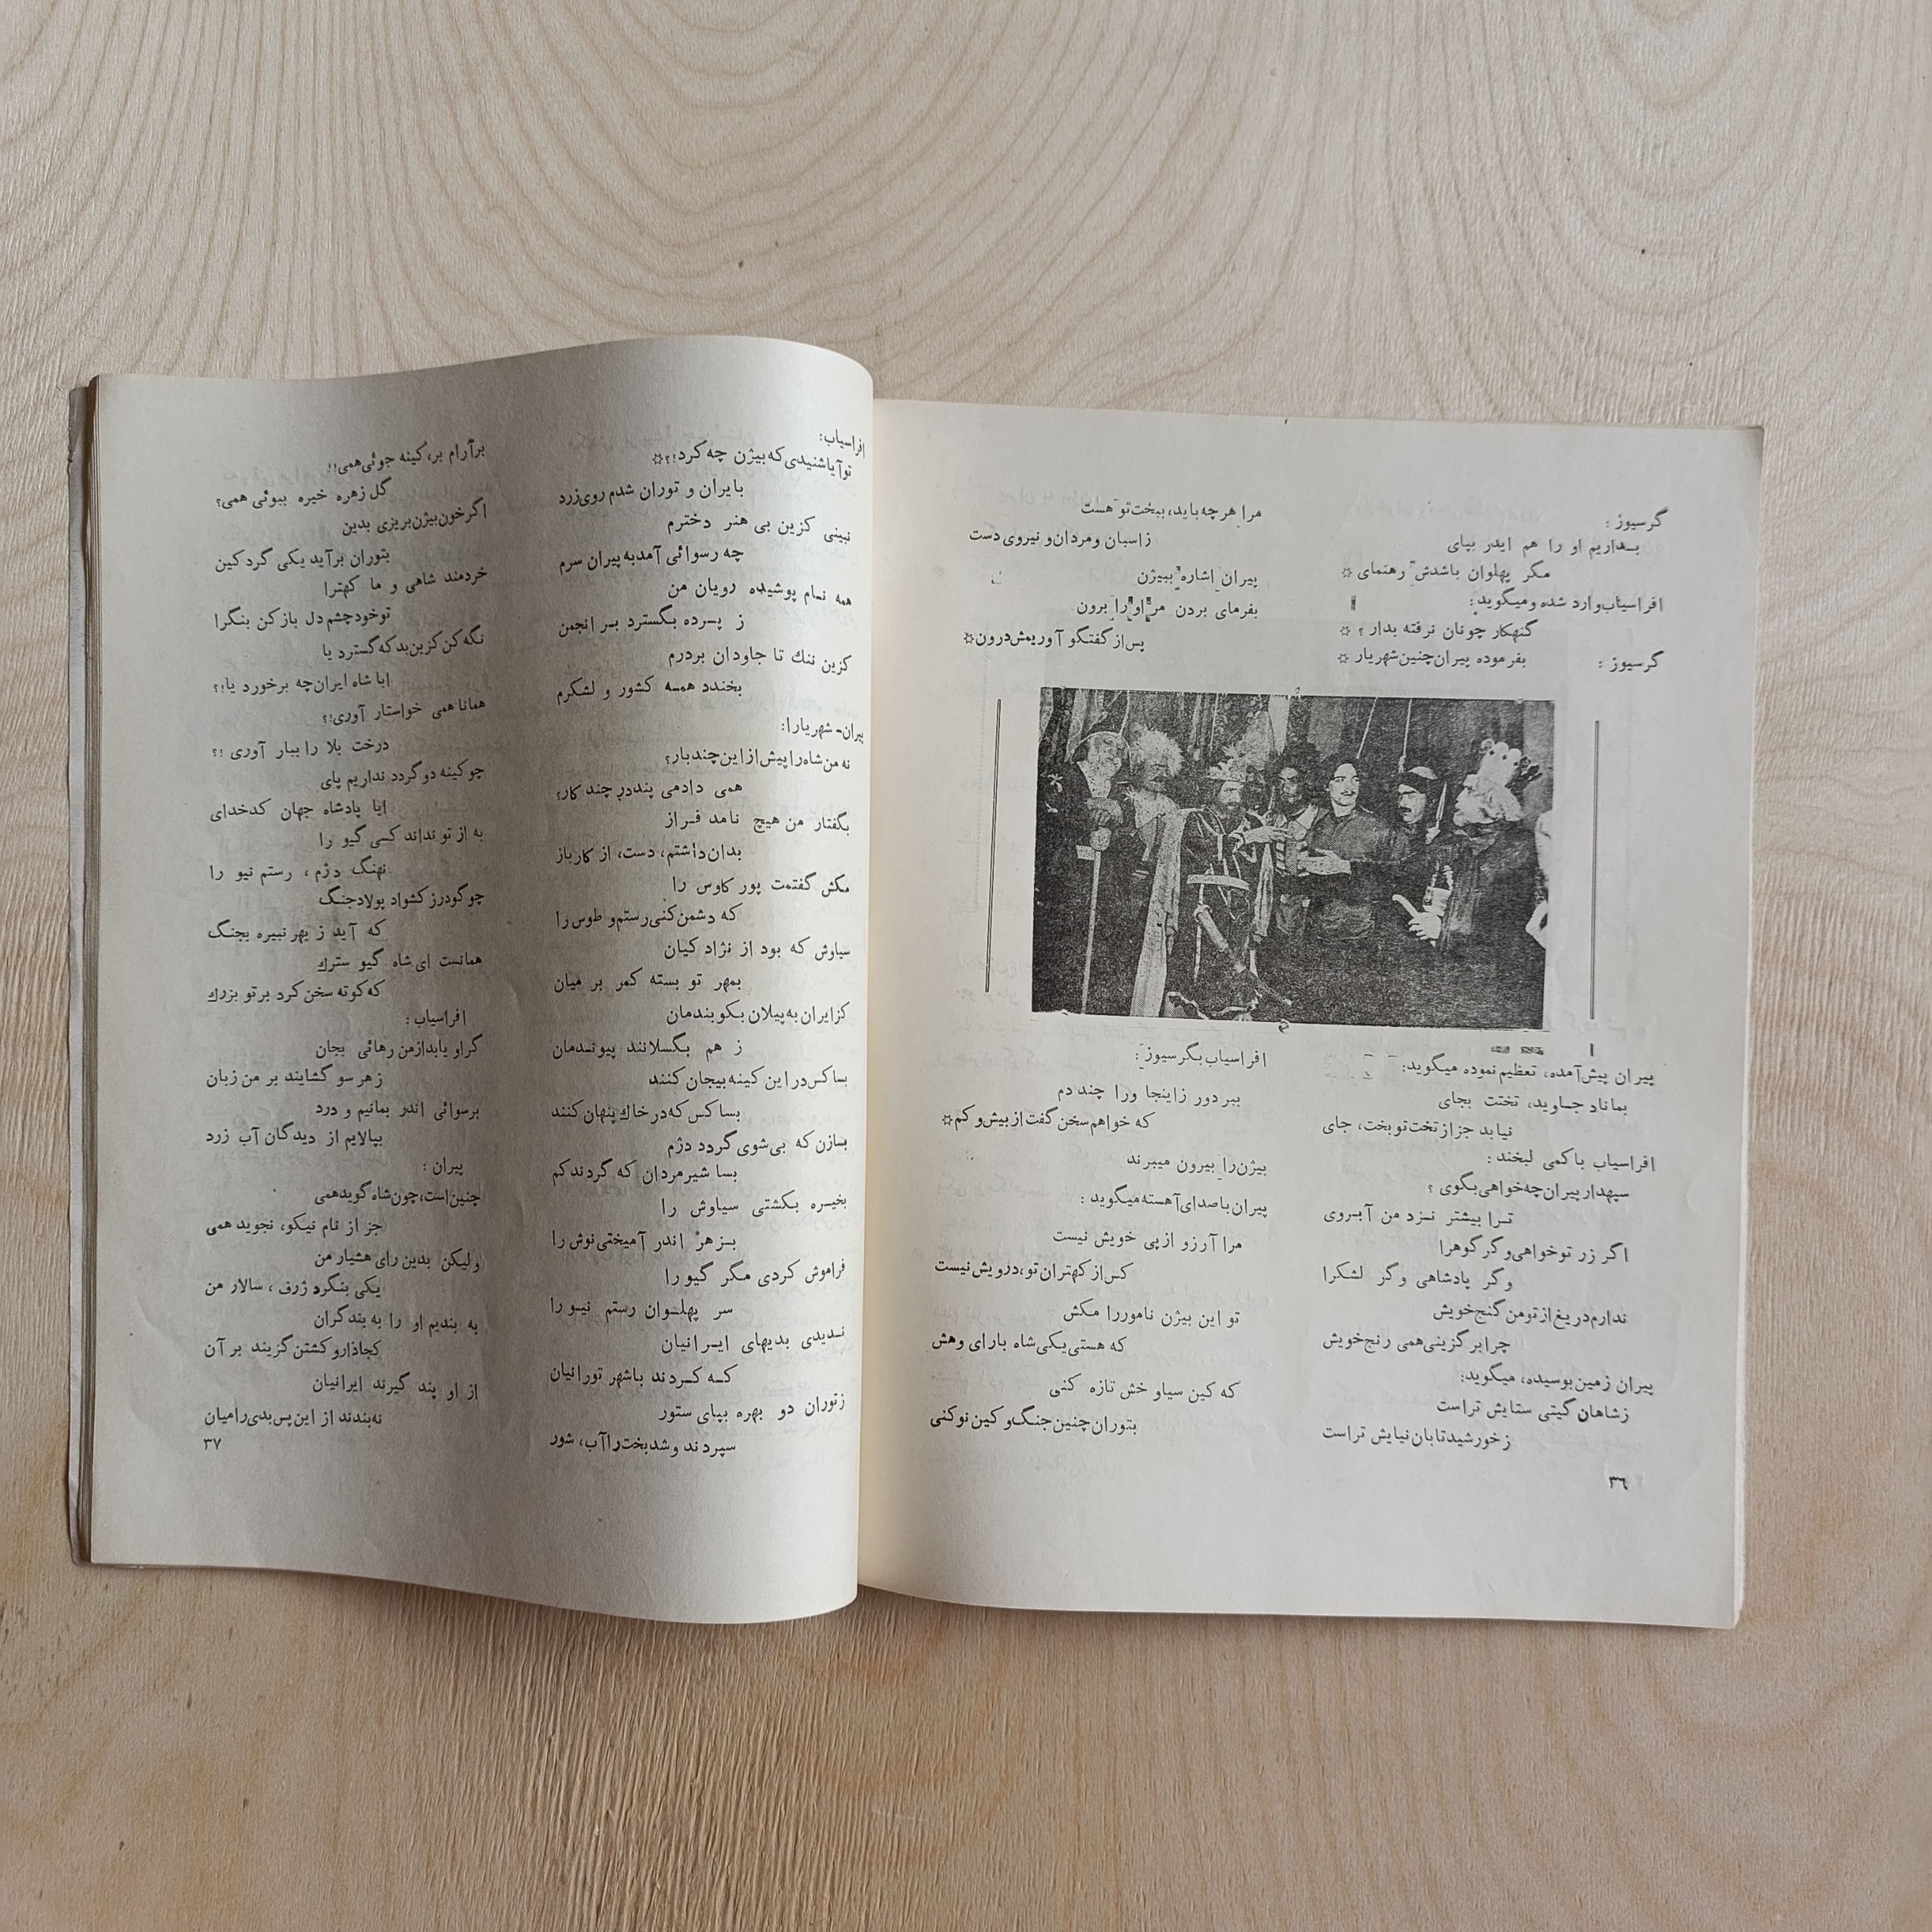 گرسیوز :
بداریم او را هم ایدر بپای
مگر پهلوان باشدش رهنمای ☆
افراسیاب وارد شده و میگوید:
گنهکار چونان نرفته بدار ؟ ☆
گرسیوز :
بفرموده پیران چنین شهریار ☆
مرا هرچه باید، ببخت تو هست
ز اسبان و مردان و نیروی دست
پیران اشاره ببیژن
بفرمای بردن مر او را برون
پس از گفتگو آوریمش درون ☆
پیران پیش آمده، تعظیم نموده میگوید:
بماناد جاوید، تختت بجای
نیابد جز از تخت تو بخت، جای
افراسیاب با کمی لبخند :
سپهدار پیران چه خواهی بگوی ؟
ترا بیشتر نزد من آبروی
اگر زر تو خواهی و گر گوهرا
وگر پادشاهی وگر لشکرا
ندارم دریغ از تو من گنج خویش
چرا بر گزینی همی رنج خویش
پیران زمین بوسیده، میگوید:
ز شاهان گیتی ستایش تراست
ز خورشید تابان نیایش تراست
افراسیاب بگرسیوز :
ببر دور ز اینجا ورا چند دم
که خواهم سخن گفت از بیش و کم ☆
بیژن را بیرون میبرند
پیران با صدای آهسته میگوید :
مرا آرزو از پی خویش نیست
کس از کهتران تو، درویش نیست
تو این بیژن نامور را مکش
که هستی یکی شاه با رای وهش
که کین سیاوخش تازه کنی
بتوران چنین جنگ و کین نو کنی
۳٦
افراسیاب:
تو آیا شنیدی که بیژن چه کرد!؟ ☆
بایران و توران شدم روی زرد
نبینی کزین بی هنر دخترم
چه رسوائی آمد به پیران سرم
همه نام پوشیده رویان من
ز پرده بگسترد بر انجمن
کزین ننك تا جاودان بردرم
بخندد همه کشور و لشکرم
پیران- شهریارا:
نه من شاه را پیش از این چند بار؟
همی دادمی پند در چند کار؟
بگفتار من هیچ نامد فراز
بدان داشتم، دست، از کار باز
مکش گفتمت پور کاوس را
که دشمن کنی رستم و طوس را
سیاوش که بود از نژاد کیان
بمهر تو بسته کمر بر میان
کز ایران به پیلان بکوبندمان
ز هم بگسلانند پیوندمان
بسا کس در این کینه بیجان کنند
بسا کس که در خاك پنهان کنند
بسا زن که بی شوی گردد دژم
بسا شیر مردان که گردند کم
بخیره بکشتی سیاوش را
بزهر اندر آمیختی نوش را
فراموش کردی مگر گیو را
سر پهلوان رستم نیو را
ندیدی بدیهای ایرانیان
که کردند با شهر تورانیان
ز توران دو بهره بپای ستور
سپردند و شد بخت را آب، شور
بر آرام بر، کینه جوئی همی!!
گل زهره خیره ببوئی همی؟
اگر خون بیژن بریزی بدین
بتوران برآید یکی گرد کین
خردمند شاهی و ما کهترا
تو خود چشم دل باز کن بنگرا
نگه کن کزین بد که گسترد یا
ابا شاه ایران چه برخورد یا!؟
همانا همی خواستار آوری!؟
درخت بلا را ببار آوری !؟
چو کینه دو گردد نداریم پای
ایا پادشاه جهان کدخدای
به از تو نداند کسی گیو را
نهنگ دژم ، رستم نیو را
چو گودرز کشواد پولاد جنگ
که آید ز بهر نبیره بجنگ
همانست ای شاه گیو سترك
که کوته سخن کرد بر تو بزرك
افراسیاب :
گر او یابد از من رهائی بجان
ز هر سو گشایند بر من زبان
برسوائی اندر بمانیم و درد
بپالایم از دیدگان آب زرد
پیران :
چنین است، چون شاه گوید همی
جز از نام نیکو، نجوید همی
ولیکن بدین رای هشیار من
یکی بنگرد ژرف ، سالار من
به بندیم او را به بند گران
کجا دار و کشتن گزیند بر آن
از او پند گیرند ایرانیان
نه بندند از این پس بدی را میان
۳۷